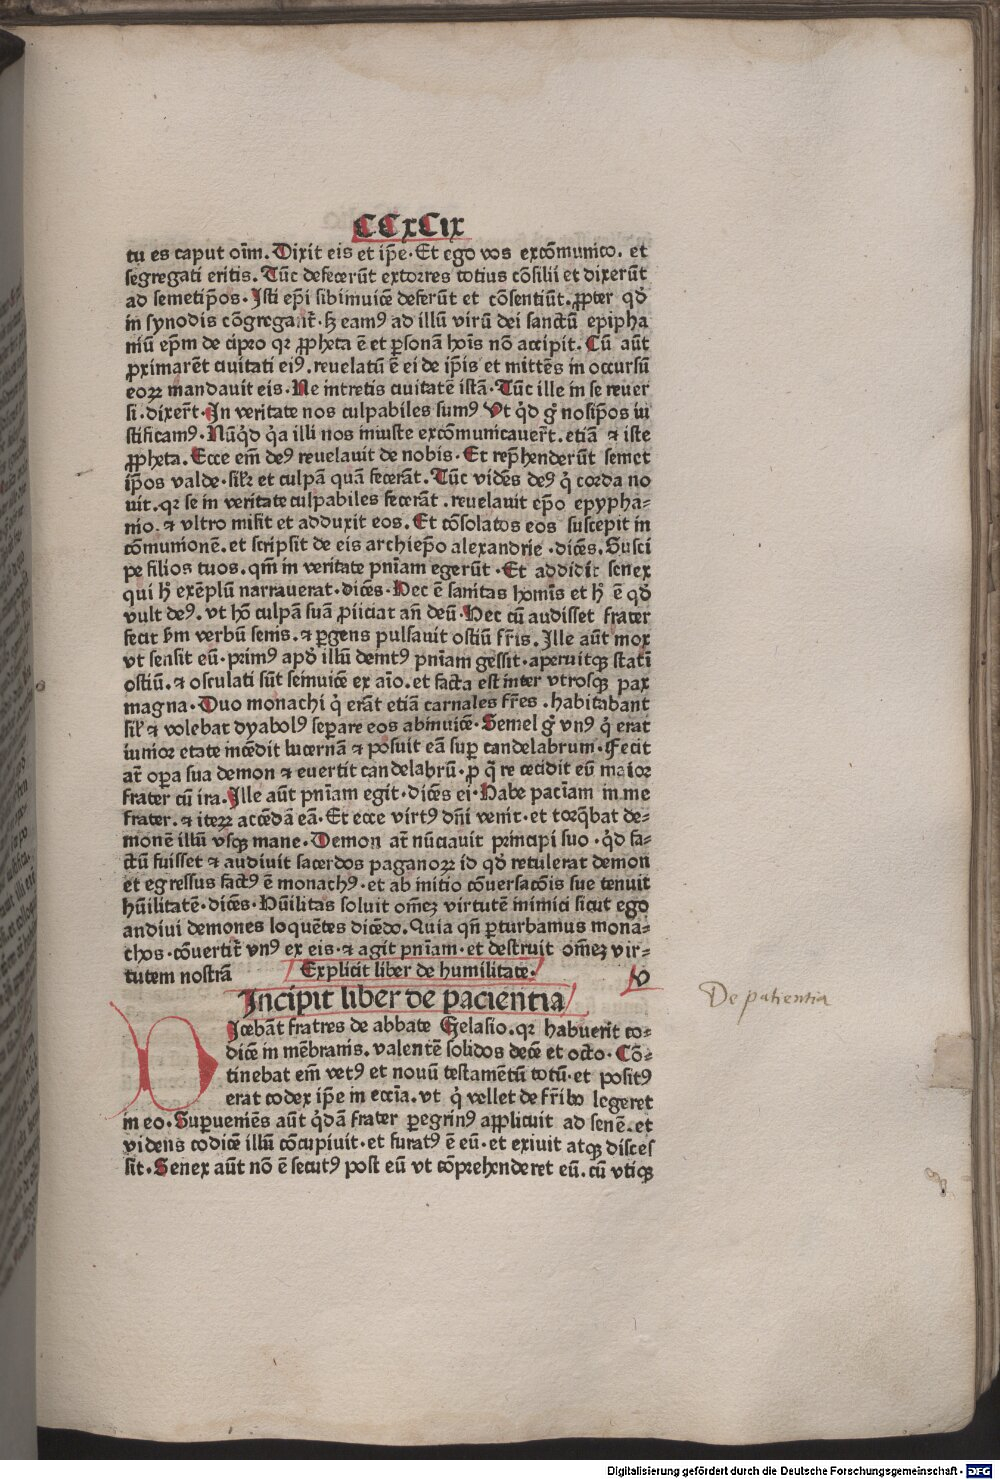 CCxCix
tu es caput oīm. Dixit eis et ip̄e. Et ego vos excōmunico. et
segregati eritis. Tūc defecerūt extorres totius cōsilii et dixerūt
ad semetip̄os. Isti ep̄i sibimuicē deferūt et cōsentiūt. ꝓpter qđ
in synodis cōgregant̄. sꝫ eamꝰ ad illū virū dei sanctū epipha
niū ep̄m de cipro qꝛ ꝓpheta ē et ꝑsonā hoīs nō accipit. Cū aūt
ꝓximarēt ciuitati eiꝰ. reuelatū ē ei de ip̄is et mittēs in occursū
eoꝝ mandauit eis. Ne intretis ciuitatē istā. Tūc ille in se reuer
si. dixer̄t. In veritate nos culpabiles sumꝰ Vt qͥd gͦ nosip̄os iu
stificamꝰ. Nūqͥd qͥa illi nos iniuste excōmunicauer̄t. etiā ⁊ iste
ꝓpheta. Ecce em̄ deꝰ reuelauit de nobis. Et rep̄henderūt semet
ip̄os valde. silꝛ et culpā quā fecerāt. Tūc vidēs deꝰ qͥ corda no
uit. qꝛ se in veritate culpabiles fecerāt. reuelauit ep̄o epypha-
nio. ⁊ vltro misit et adduxit eos. Et cōsolatos eos suscepit in
cōmunionē. et scripsit de eis archiep̄o alexandrie. dicēs. Susci
pe filios tuos. qm̄ in veritate pn̄iam egerūt. Et addidit senex
qui hͦ exēplū narrauerat. dicēs. Hec ē sanitas hominīs et hͦ ē qđ
vult deꝰ. vt hō culpā suā ꝓiiciat an̄ deū. Hec cū audisset frater
fecit ẜm verbū senis. ⁊ ꝑgens pulsauit ostiū fr̄is. Ille aūt mox
vt sensit eū. primꝰ apđ illū demtꝰ pn̄iam gessit. aperuitqꝫ statī
ostiū. ⁊ osculati sūt seinuicē ex aīo. et facta est inter vtrosqꝫ pax
magna. Duo monachi qͥ erāt etiā carnales fr̄es. habitabant
silꝛ ⁊ volebat dyabolꝰ seꝑare eos abinuicē. Semel gͦ vnꝰ qͥ erat
iunior etate incēdit lucernā ⁊ posuit eā suꝑ candelabrum. Fecit
at̄ oꝑa sua demon ⁊ euertit candelabrū. ꝓ q̄ re cecidit eū maior
frater cū ira. Ille aūt pn̄iam egit. dicēs ei. Habe paciam in me
frater. ⁊ iteꝝ accēdā eā. Et ecce virtꝰ dn̄i venit. et torq̄bat de-
monē illū vsqꝫ mane. Demon at̄ nūciauit principi suo. qđ fa-
ctū fuisset ⁊ audiuit sacerdos paganoꝝ id qđ retulerat demon
et egressus factꝰ ē monachꝰ. et ab initio cōuersacōis sue tenuit
hūilitatē. dicēs. Hūilitas soluit om̄eꝫ virtutē inimici sicut ego
andiui demones loquētes dicēdo. Quia qn̄ ꝑturbamus mona-
chos. cōuertit̄ vnꝰ ex eis. ⁊ agit pn̄iam. et destruit om̄eꝫ vir-
tutem nostrā Explicit liber de humilitate.
Incipit liber de pacientia
De patientia
DIcebāt fratres de abbate Gelasio. qꝛ habuerit co-
dicē in mēbranis. valentē solidos decē et octo. Cō-
tinebat em̄ vetꝰ et nouū testamētū totū. et positꝰ
erat codex ip̄e in eccīa. vt qͥ vellet de fr̄ibo legeret
in eo. Suꝑueniēs aūt qͥdā frater ꝑegrinꝰ applicuit ad senē. et
videns codicē illū cōcupiuit. et furatꝰ ē eū. et exiuit atqꝫ disces
sit. Senex aūt nō ē secutꝰ post eū vt cōprehenderet eū. cū vtiqꝫ
Digitalisierung gefördert durch die Deutsche Forschungsgemeinschaft - DFG